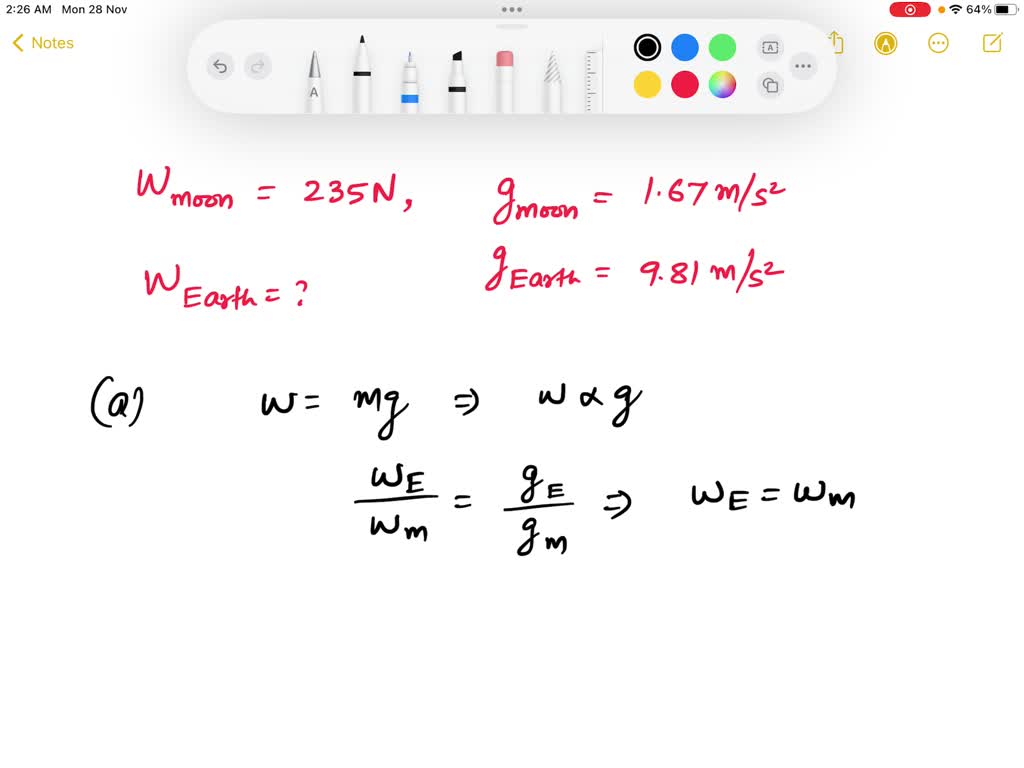 2:26 AM Mon 28 Nov 64%
Notes
A A
W moon = 235N, g moon = 1.67 m/s²
W Earth = ? g Earth = 9.81 m/s²
(a) W = mg ⇒ W ∝ g
W_E / W_m = g_E / g_m ⇒ W_E = W_m